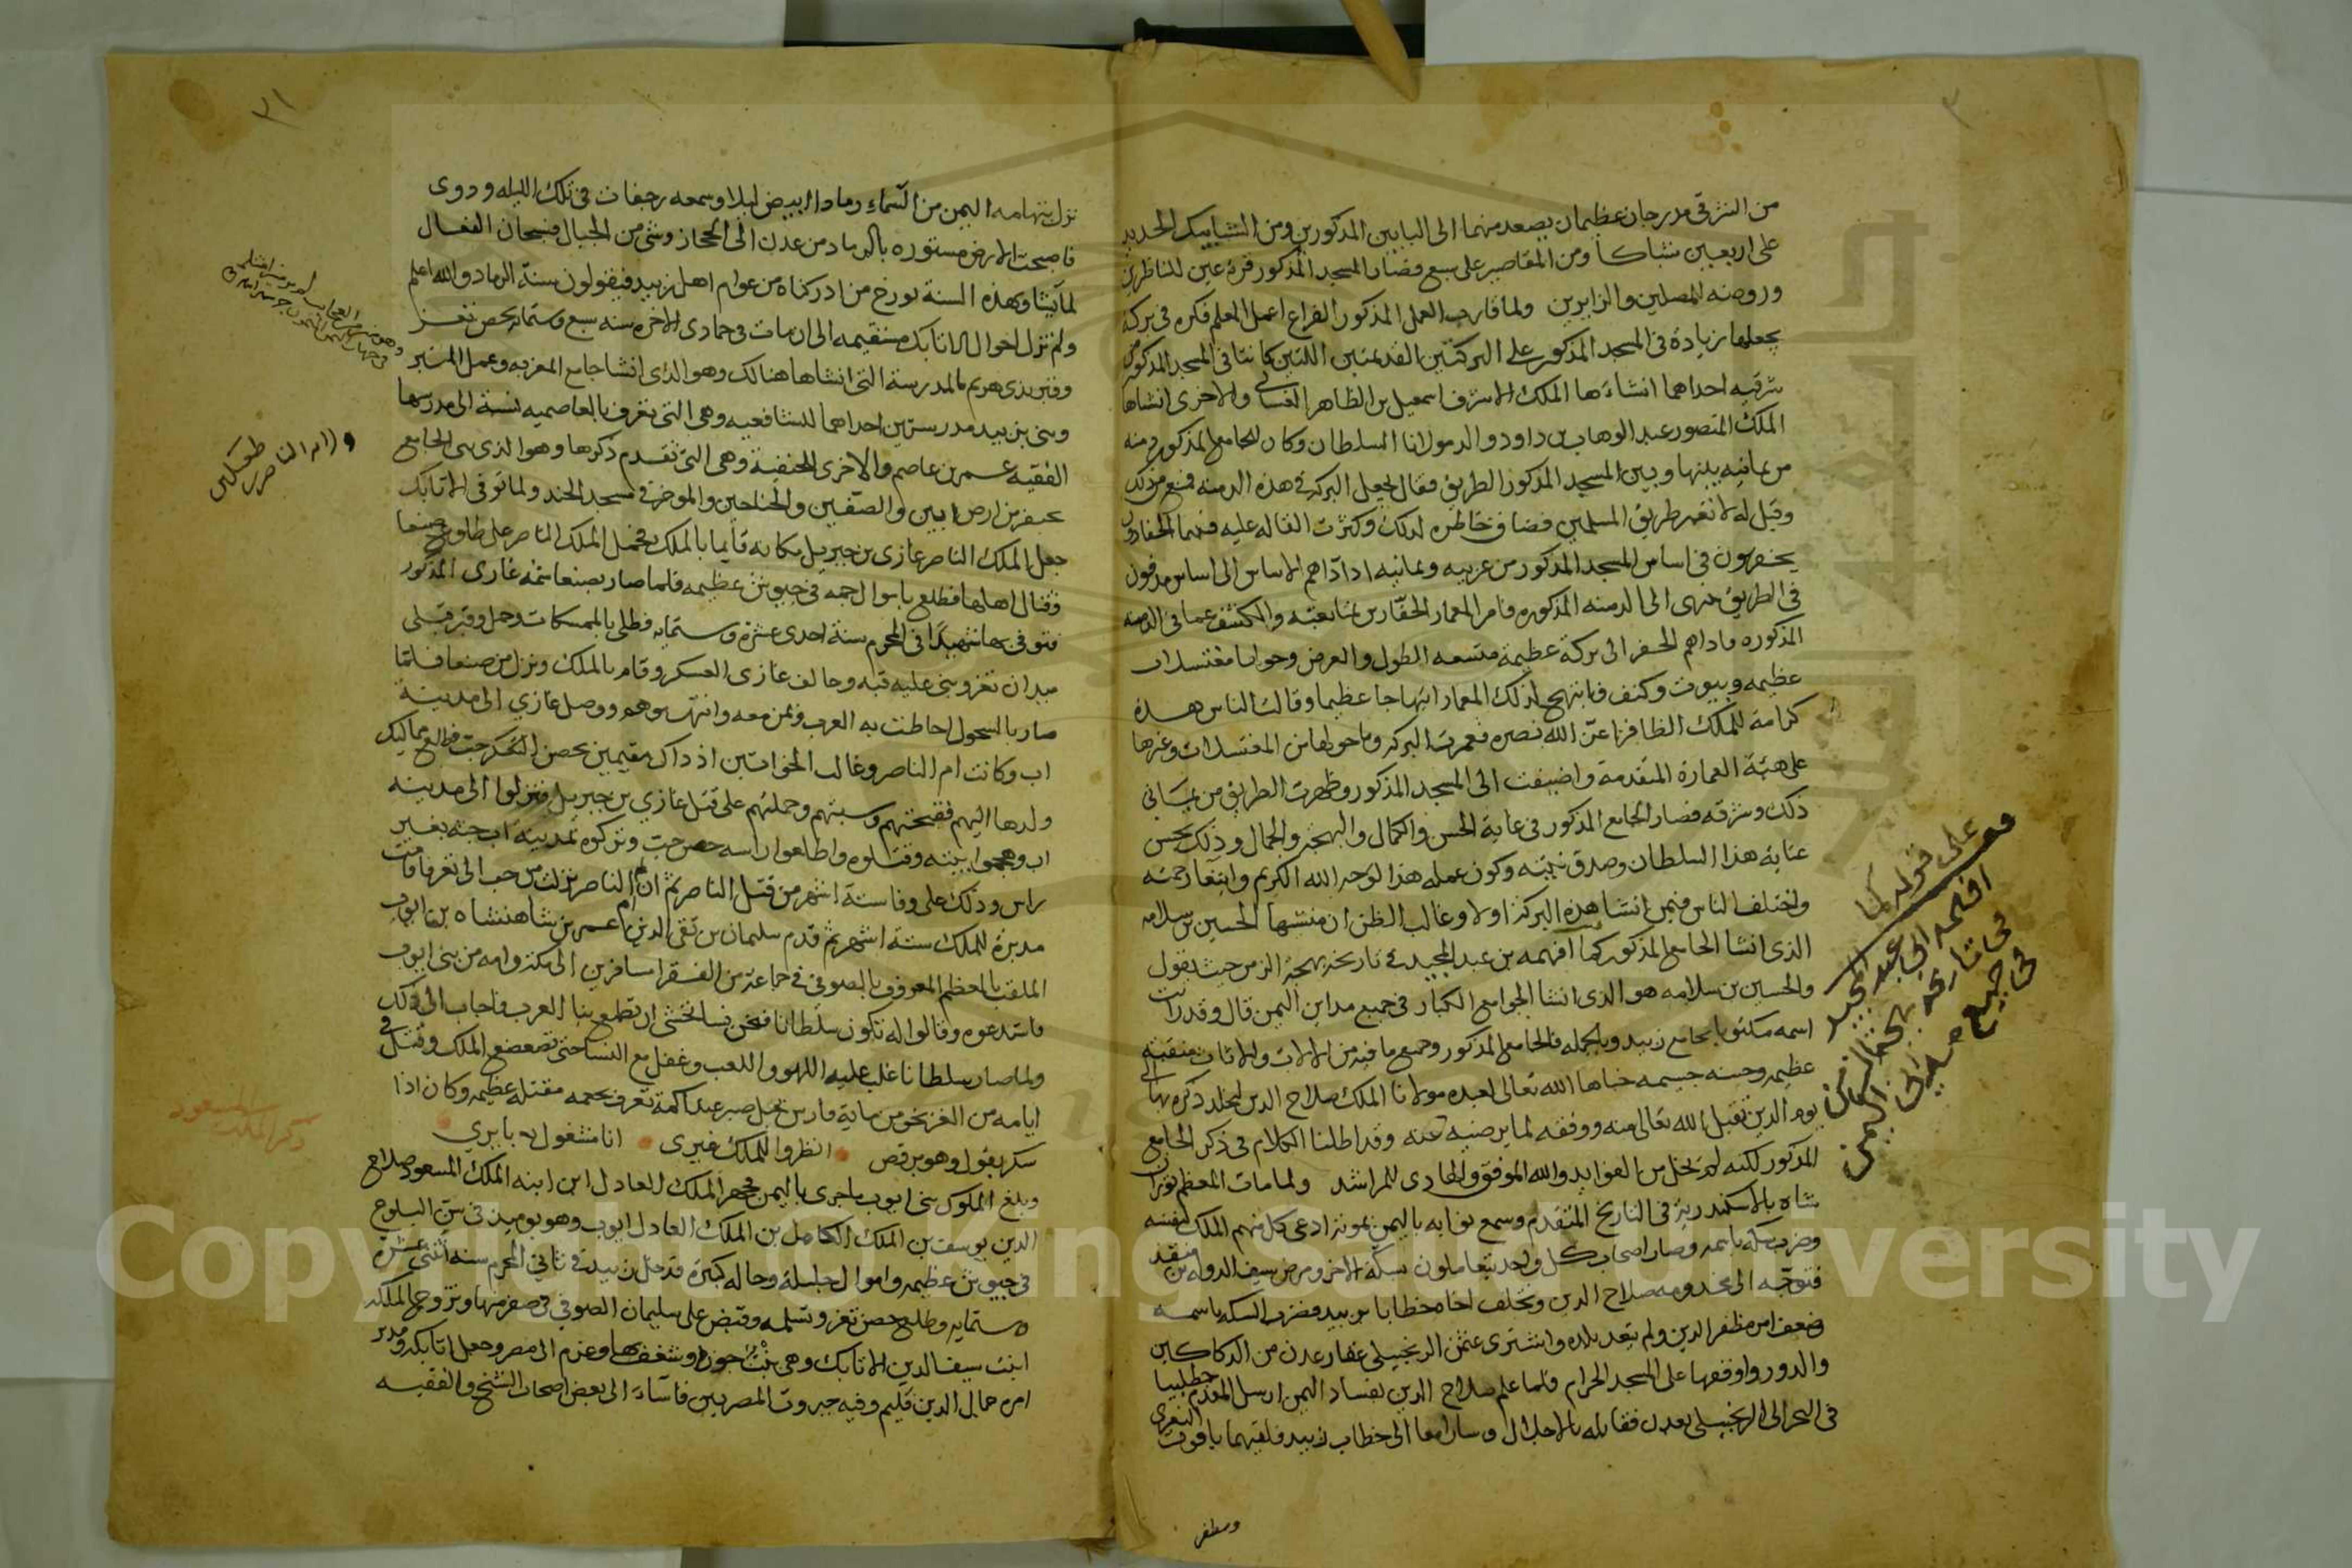 من الشرقي مدرجان عظيمان يصعد منهما الى البابين المذكورين ومن الشبابيك الحديد
على اربعين شباكا ومن المقاصير على سبع فصار المسجد المذكور قرة عين للناظرين
وروضه للمصلين والزايرين ولما قارب العمل المذكور الفراغ اعمل المعلم فكره في بركة
يجعلها زيادة في المسجد المذكور على البركتين القديمتين اللتين كانتا في المسجد المذكور من
شرقيه احداهما انشاءها الملك الاشرف اسمعيل بن الظاهر الغساني والاخرى انشاها
الملك المنصور عبد الوهاب بن داود والد مولانا السلطان وكان للجامع المذكور دمنه
من يمانيه بينها وبين المسجد المذكور الطريق فقال لجعل البركة في هذه الدمنه فمنع من ذلك
وقيل له لا تغير طريق المسلمين فضاق خاطره لذلك وكثرت القاله عليه فبينما الحفارون
يحفرون في اساس المسجد المذكور من غربيه ويمانيه اذ اداهم الاساس الى اساس مدفون
في الطريق جرى الى الدمنه المذكوره فامر المعمار الحفارين بمتابعته والكشف عما في الدمنه
المذكوره فاداهم الحفر الى بركة عظيمة متسعه الطول والعرض وحولها مغتسلات
عظيمه وبيوت وكنف فابتهج لذلك المعمار ابتهاجا عظيما وقالت الناس هذه
كرامة للملك الظافر اعز الله نصره فعمرت البركه وما حولها من المغتسلات وغيرها
على هيئة العمارة المتقدمة واضيفت الى المسجد المذكور وظهرت الطريق من يماني
ذلك وشرقه فصار الجامع المذكور في غاية الحسن والكمال والبهجة والجمال وذلك بحسن
عناية هذا السلطان وصدق نيته وكون عمله هذا لوجه الله الكريم وابتغا رحمته
واختلف الناس فيمن انشا هذه البركة اولا وغالب الظن ان منشيها الحسين بن سلامه
الذى انشا الجامع المذكور كما افهمه بن عبد المجيد في تاريخه بهجة الزمن حيث يقول
والحسين بن سلامه هو الذى انشا الجوامع الكبار في جميع مداين اليمن قال وقد رايت
اسمه مكتوبا بجامع زبيد وبالجمله فالجامع المذكور وجميع ما فيه من الالات والاثاث منقبة
عظيمه وحسنه جسيمه خباها الله تعالى لعبده مولانا الملك صلاح الدين ليخلد ذكره بها الى
يوم الدين تقبل الله تعالى منه ووفقه لما يرضيه عنه وقد اطلنا الكلام في ذكر الجامع
المذكور لكنه لم يخل من الفوايد والله الموفق والهادى للمراشد ولما مات المعظم توران
شاه بالاسكندرية في التاريخ المتقدم وسمع نوابه باليمن بموته ادعى كل منهم الملك لنفسه
وضرب سكه باسمه وصار اصحاب كل واحد يتعاملون بسكة الاخر ومرض سيف الدوله بن منقذ
فتوجه الى مخدومه صلاح الدين وتخلف اخاه خطابا بزبيد فضرب السكه باسمه
وضعف امر مظفر الدين ولم يتعد بلاده واشترى عثمن الزنجيلي عقار عدن من الدكاكين
والدور واوقفها على المسجد الحرام فلما علم صلاح الدين بفساد اليمن ارسل المقدم خطلبيا
في البحر الى الزنجيلي بعدن فقابله بالاجلال وسارا معا الى خطاب زبيد فلقيهما ياقوت التعزى
ومظفر
على قوله كما
افهمه ابن عبد المجيد
في تاريخه بهجة الزمن
في جميع مداين اليمن
٣١
نزل بتهامه اليمن من السماء رماد ابيض ليلا وسمعه رجفات في تلك الليله ودوى
فاصبحت الارض مستوره بالرماد من عدن الى الحجاز وشى من الجبال فسبحان الفعال
لما يشا وهذه السنة يورخ من ادركناه من عوام اهل زبيد فيقولون سنة الرماد والله اعلم
ولم تزل احوال الاتابك مستقيمه الى ان مات في جمادى الاخره سنه سبع وستمايه بحصن تعز
وقبر بذى هريم بالمدرسة التى انشاها هنالك وهو الذى انشا جامع المغربه وعمل المنبر
وبنى بزبيد مدرستين احداهما للشافعيه وهى التى تعرف بالعاصميه نسبة الى مدرسها
الفقيه عمر بن عاصم والاخرى للحنفية وهى التى تقدم ذكرها وهو الذى بنى الجامع
بخنفر من ارض ابين والصفين والجناحين والموخر في مسجد الجند ولما توفي الاتابك
جعل الملك الناصر غازى بن جبريل مكانه قايما بالملك فحمل الملك الناصر على طلوع صنعا
وقتال اهلها فطلع باموال جمه في جيوش عظيمه فلما صار بصنعا سمه غازى المذكور
فتوفي بها شهيدا في المحرم سنة احدى عشرة وستمايه فطلى بالممسكات وحمل وقبر قبلى
ميدان تعز وبنى عليه قبه وحالف غازى العسكر وقام بالملك ونزل من صنعا فلما
صار بالسحول احاطت به العرب وبمن معه وانتهبوهم ووصل غازي الى مدينة
اب وكانت ام الناصر وغالب الخواتين اذ ذاك مقيمين بحصن التعكر حب فطلع مماليك
ولدها اليهم فقبحتهم وسبتهم وحملتهم على قتل غازي بن جبريل فنزلوا الى مدينه
اب وهجموا بيته وقتلوه واطلعوا راسه حصن حب وتركوه بمدينة اب جثة بغير
راس وذلك على وفا ستة اشهر من قتل الناصر ثم ان ام الناصر نزلت من حب الى تعز فاقامت
مدبرة للملك ستة اشهر ثم قدم سليمان بن تقى الدين عمر بن شاهنشاه بن ايوب
الملقب بالمعظم المعروف بالصوفي في جماعة من الفقرا مسافرين الى مكة وامه من بنى ايوب
فاستدعوه وقالوا له تكون سلطانا فنحن نسا نخشى ان تطمع بنا العرب فاجاب الى ذلك
ولما صار سلطانا غلب عليه اللهو واللعب وغفل مع النسا حتى تضعضع الملك وقتل في
ايامه من الغز نحو من ماية فارس بجبل صبر عند اكمة تعرف بحمه مقتله عظيمه وكان اذا
سكر يقول وهو يرقص انظروا للملك غيرى انا مشغول بابريي
وبلغ الملوك بنى ايوب ما جرى باليمن فجهز الملك العادل ابن ابنه الملك المسعود صلاح
الدين يوسف بن الملك الكامل بن الملك العادل ايوب وهو يوميذ في سن البلوغ
في جيوش عظيمه واموال جليلة وحاله كبيرة فدخل زبيد في ثاني المحرم سنه اثنتى عشرة
وستمايه وطلع حصن تعز وتسلمه وقبض على سليمان الصوفي في صفر منها وتزوج الملكه
ابنت سيف الدين الاتابك وهى بنت جوزا وشغف بها وعزم الى مصر وجعل اتابكه ومدبر
امره جمال الدين فليم وفيه جبروت المصريين فاساء الى بعض اصحاب الشيخ والفقيه
وزام الناصر طغتكين
ذكر الملك المسعود